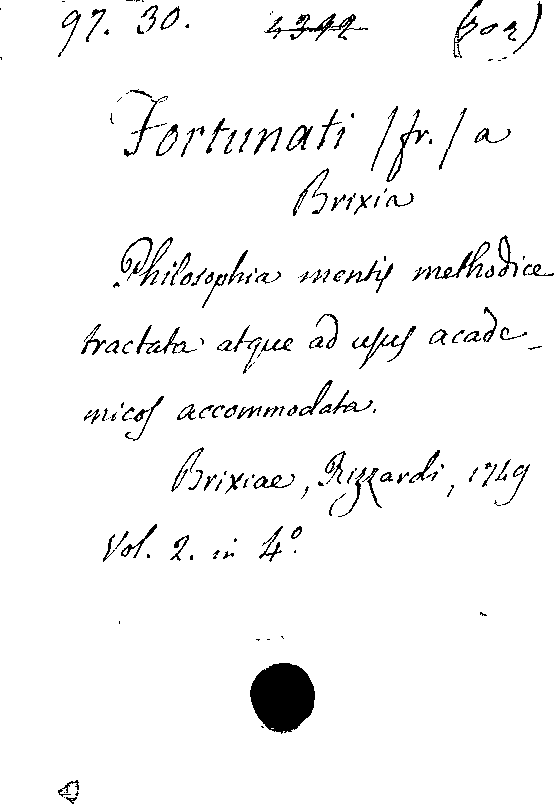 97. 30. 4392
Fortunati /fr./ a
Brixia
Philosophia mentis methodice
tractata atque ad usus acade-
micos accommodata.
Brixiae, Rizzardi, 1749
Vol. 2. in 4º.